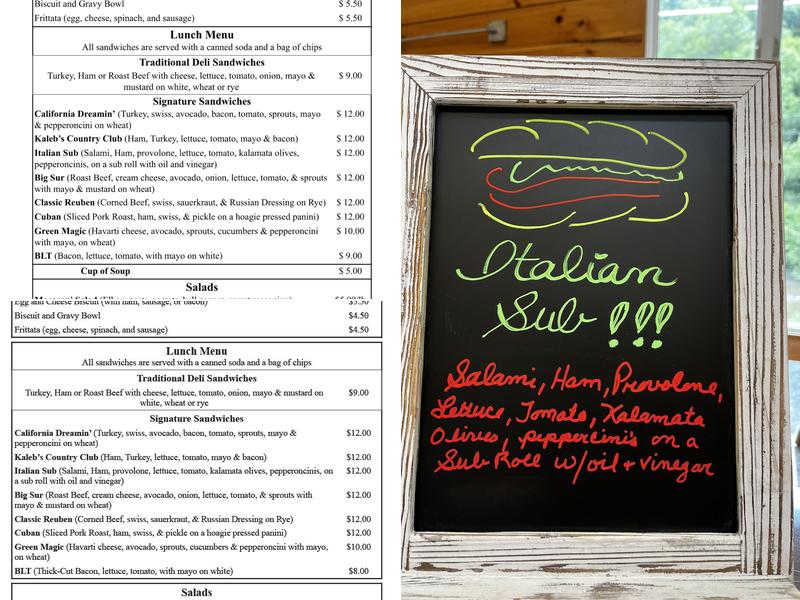 Biscuit and Gravy Bowl $ 5.50
Frittata (egg, cheese, spinach, and sausage) $ 5.50
Lunch Menu
All sandwiches are served with a canned soda and a bag of chips
Traditional Deli Sandwiches
Turkey, Ham or Roast Beef with cheese, lettuce, tomato, onion, mayo & $ 9.00
mustard on white, wheat or rye
Signature Sandwiches
California Dreamin’ (Turkey, swiss, avocado, bacon, tomato, sprouts, mayo $ 12.00
& pepperoncini on wheat)
Kaleb’s Country Club (Ham, Turkey, lettuce, tomato, mayo & bacon) $ 12.00
Italian Sub (Salami, Ham, provolone, lettuce, tomato, kalamata olives, $ 12.00
pepperoncinis, on a sub roll with oil and vinegar)
Big Sur (Roast Beef, cream cheese, avocado, onion, lettuce, tomato, & sprouts $ 12.00
with mayo & mustard on wheat)
Classic Reuben (Corned Beef, swiss, sauerkraut, & Russian Dressing on Rye) $ 12.00
Cuban (Sliced Pork Roast, ham, swiss, & pickle on a hoagie pressed panini) $ 12.00
Green Magic (Havarti cheese, avocado, sprouts, cucumbers & pepperoncini $ 10.00
with mayo, on wheat)
BLT (Bacon, lettuce, tomato, with mayo on white) $ 9.00
Cup of Soup $ 5.00
Salads
Egg and Cheese Biscuit (with ham, sausage, or bacon) $5.50
Biscuit and Gravy Bowl $4.50
Frittata (egg, cheese, spinach, and sausage) $4.50
Lunch Menu
All sandwiches are served with a canned soda and a bag of chips
Traditional Deli Sandwiches
Turkey, Ham or Roast Beef with cheese, lettuce, tomato, onion, mayo & mustard on $9.00
white, wheat or rye
Signature Sandwiches
California Dreamin’ (Turkey, swiss, avocado, bacon, tomato, sprouts, mayo & $12.00
pepperoncini on wheat)
Kaleb’s Country Club (Ham, Turkey, lettuce, tomato, mayo & bacon) $12.00
Italian Sub (Salami, Ham, provolone, lettuce, tomato, kalamata olives, pepperoncinis, on $12.00
a sub roll with oil and vinegar)
Big Sur (Roast Beef, cream cheese, avocado, onion, lettuce, tomato, & sprouts with $12.00
mayo & mustard on wheat)
Classic Reuben (Corned Beef, swiss, sauerkraut, & Russian Dressing on Rye) $12.00
Cuban (Sliced Pork Roast, ham, swiss, & pickle on a hoagie pressed panini) $12.00
Green Magic (Havarti cheese, avocado, sprouts, cucumbers & pepperoncini with mayo, $10.00
on wheat)
BLT (Thick-Cut Bacon, lettuce, tomato, with mayo on white) $8.00
Salads
Italian
Sub !!!
Salami, Ham, Provolone,
Lettuce, Tomato, Kalamata
Olives, peppercini's on a
Sub Roll w/oil + vinegar